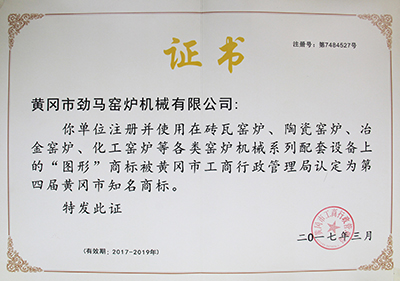 证书
注册号：第7484527号
黄冈市劲马窑炉机械有限公司：
你单位注册并使用在砖瓦窑炉、陶瓷窑炉、冶
金窑炉、化工窑炉等各类窑炉机械系列配套设备上
的“图形”商标被黄冈市工商行政管理局认定为第
四届黄冈市知名商标。
特发此证
黄冈市工商行政管理局
二〇一七年三月
（有效期：2017-2019年）